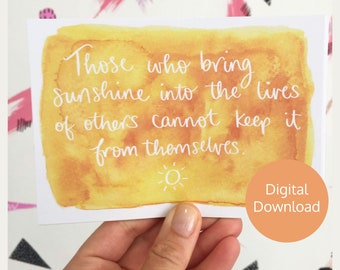 Those who bring
sunshine into the lives
of others cannot keep it
from themselves.
Digital
Download